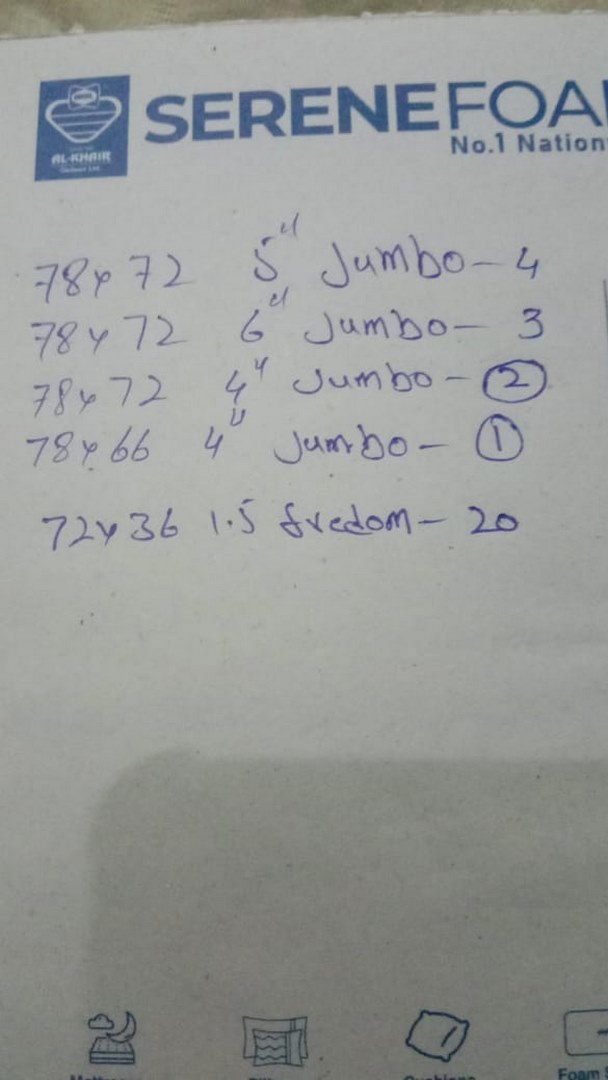 SERENEFOA
No.1 Nation
AL-KHAIR
78x72 5" Jumbo- 4
78x72 6" Jumbo- 3
78x72 4" Jumbo- 2
78x66 4" Jumbo- 1
72x36 1.5 fredom- 20
Foam